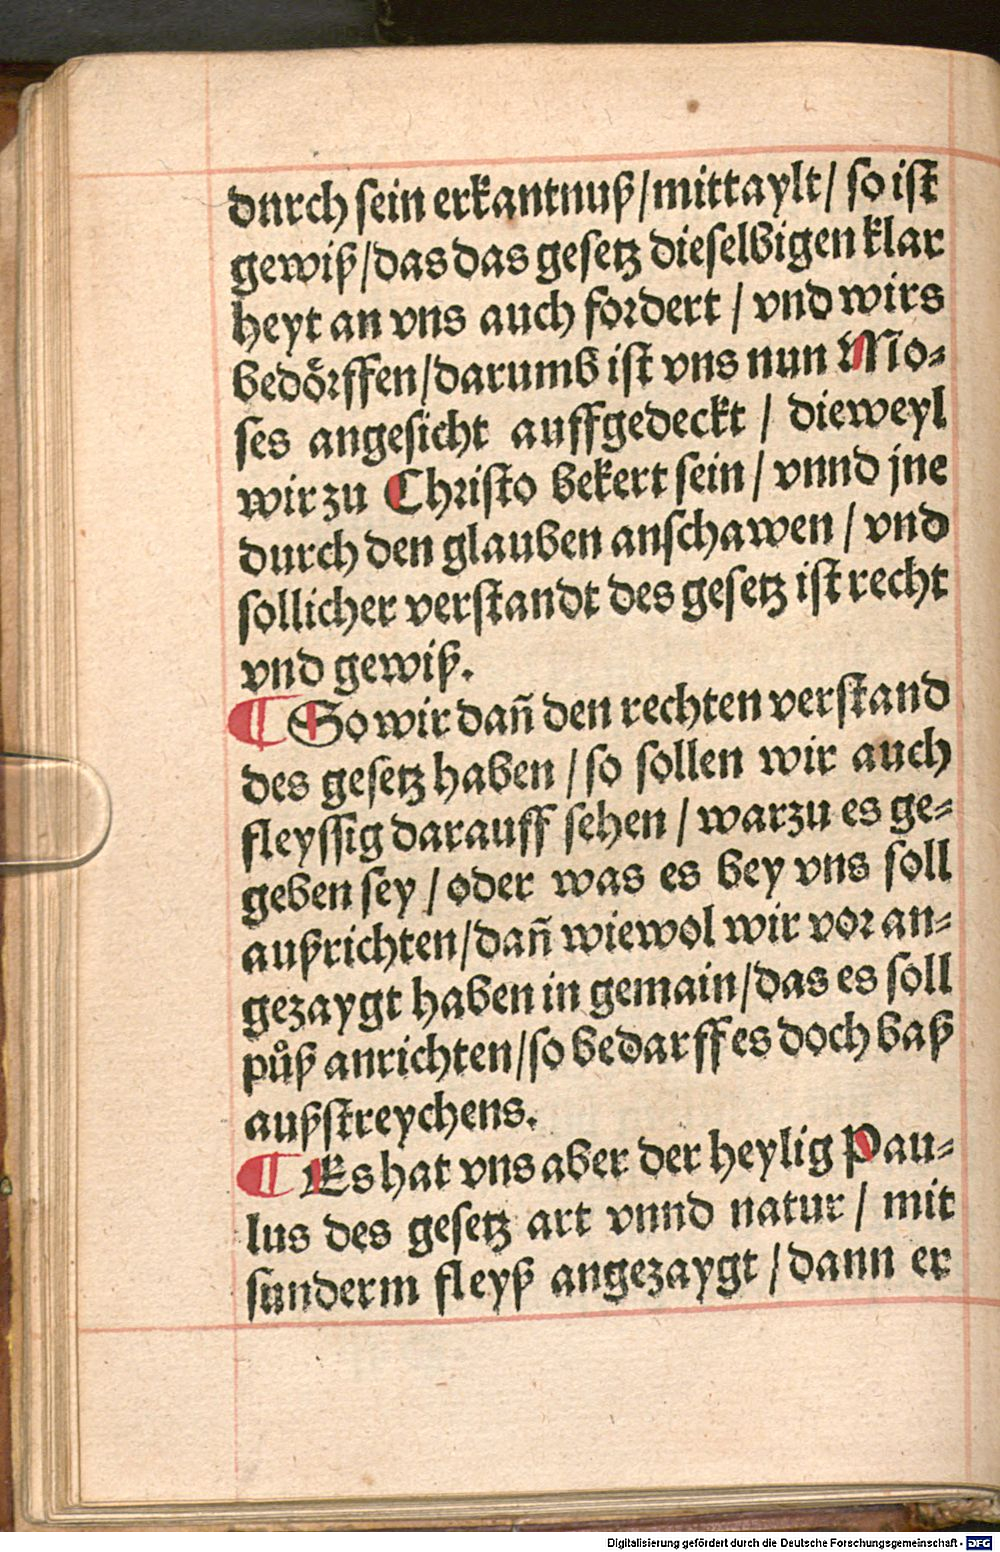 dnrch sein erkantnuß/mittaylt/ so ist
gewiß/das das gesetz dieselbigen klar
heyt an vns auch fordert / vnd wirs
bedörffen/darumb ist vns nun Mo⸗
ses angesicht auffgedeckt / dieweyl
wir zu Christo bekert sein / vnnd jne
durch den glauben anschawen / vnd
sollicher verstandt des gesetz ist recht
vnd gewiß.
¶ So wir dañ den rechten verstand
des gesetz haben / so sollen wir auch
fleyssig darauff sehen / warzu es ge⸗
geben sey / oder was es bey vns soll
außrichten/dañ wiewol wir vor an⸗
gezaygt haben in gemain/das es soll
půß anrichten/so bedarff es doch baß
außstreychens.
¶ Es hat vns aber der heylig Pau⸗
lus des gesetz art vnnd natur / mit
sunderm fleyß angezaygt / dann er
Digitalisierung gefördert durch die Deutsche Forschungsgemeinschaft - DFG